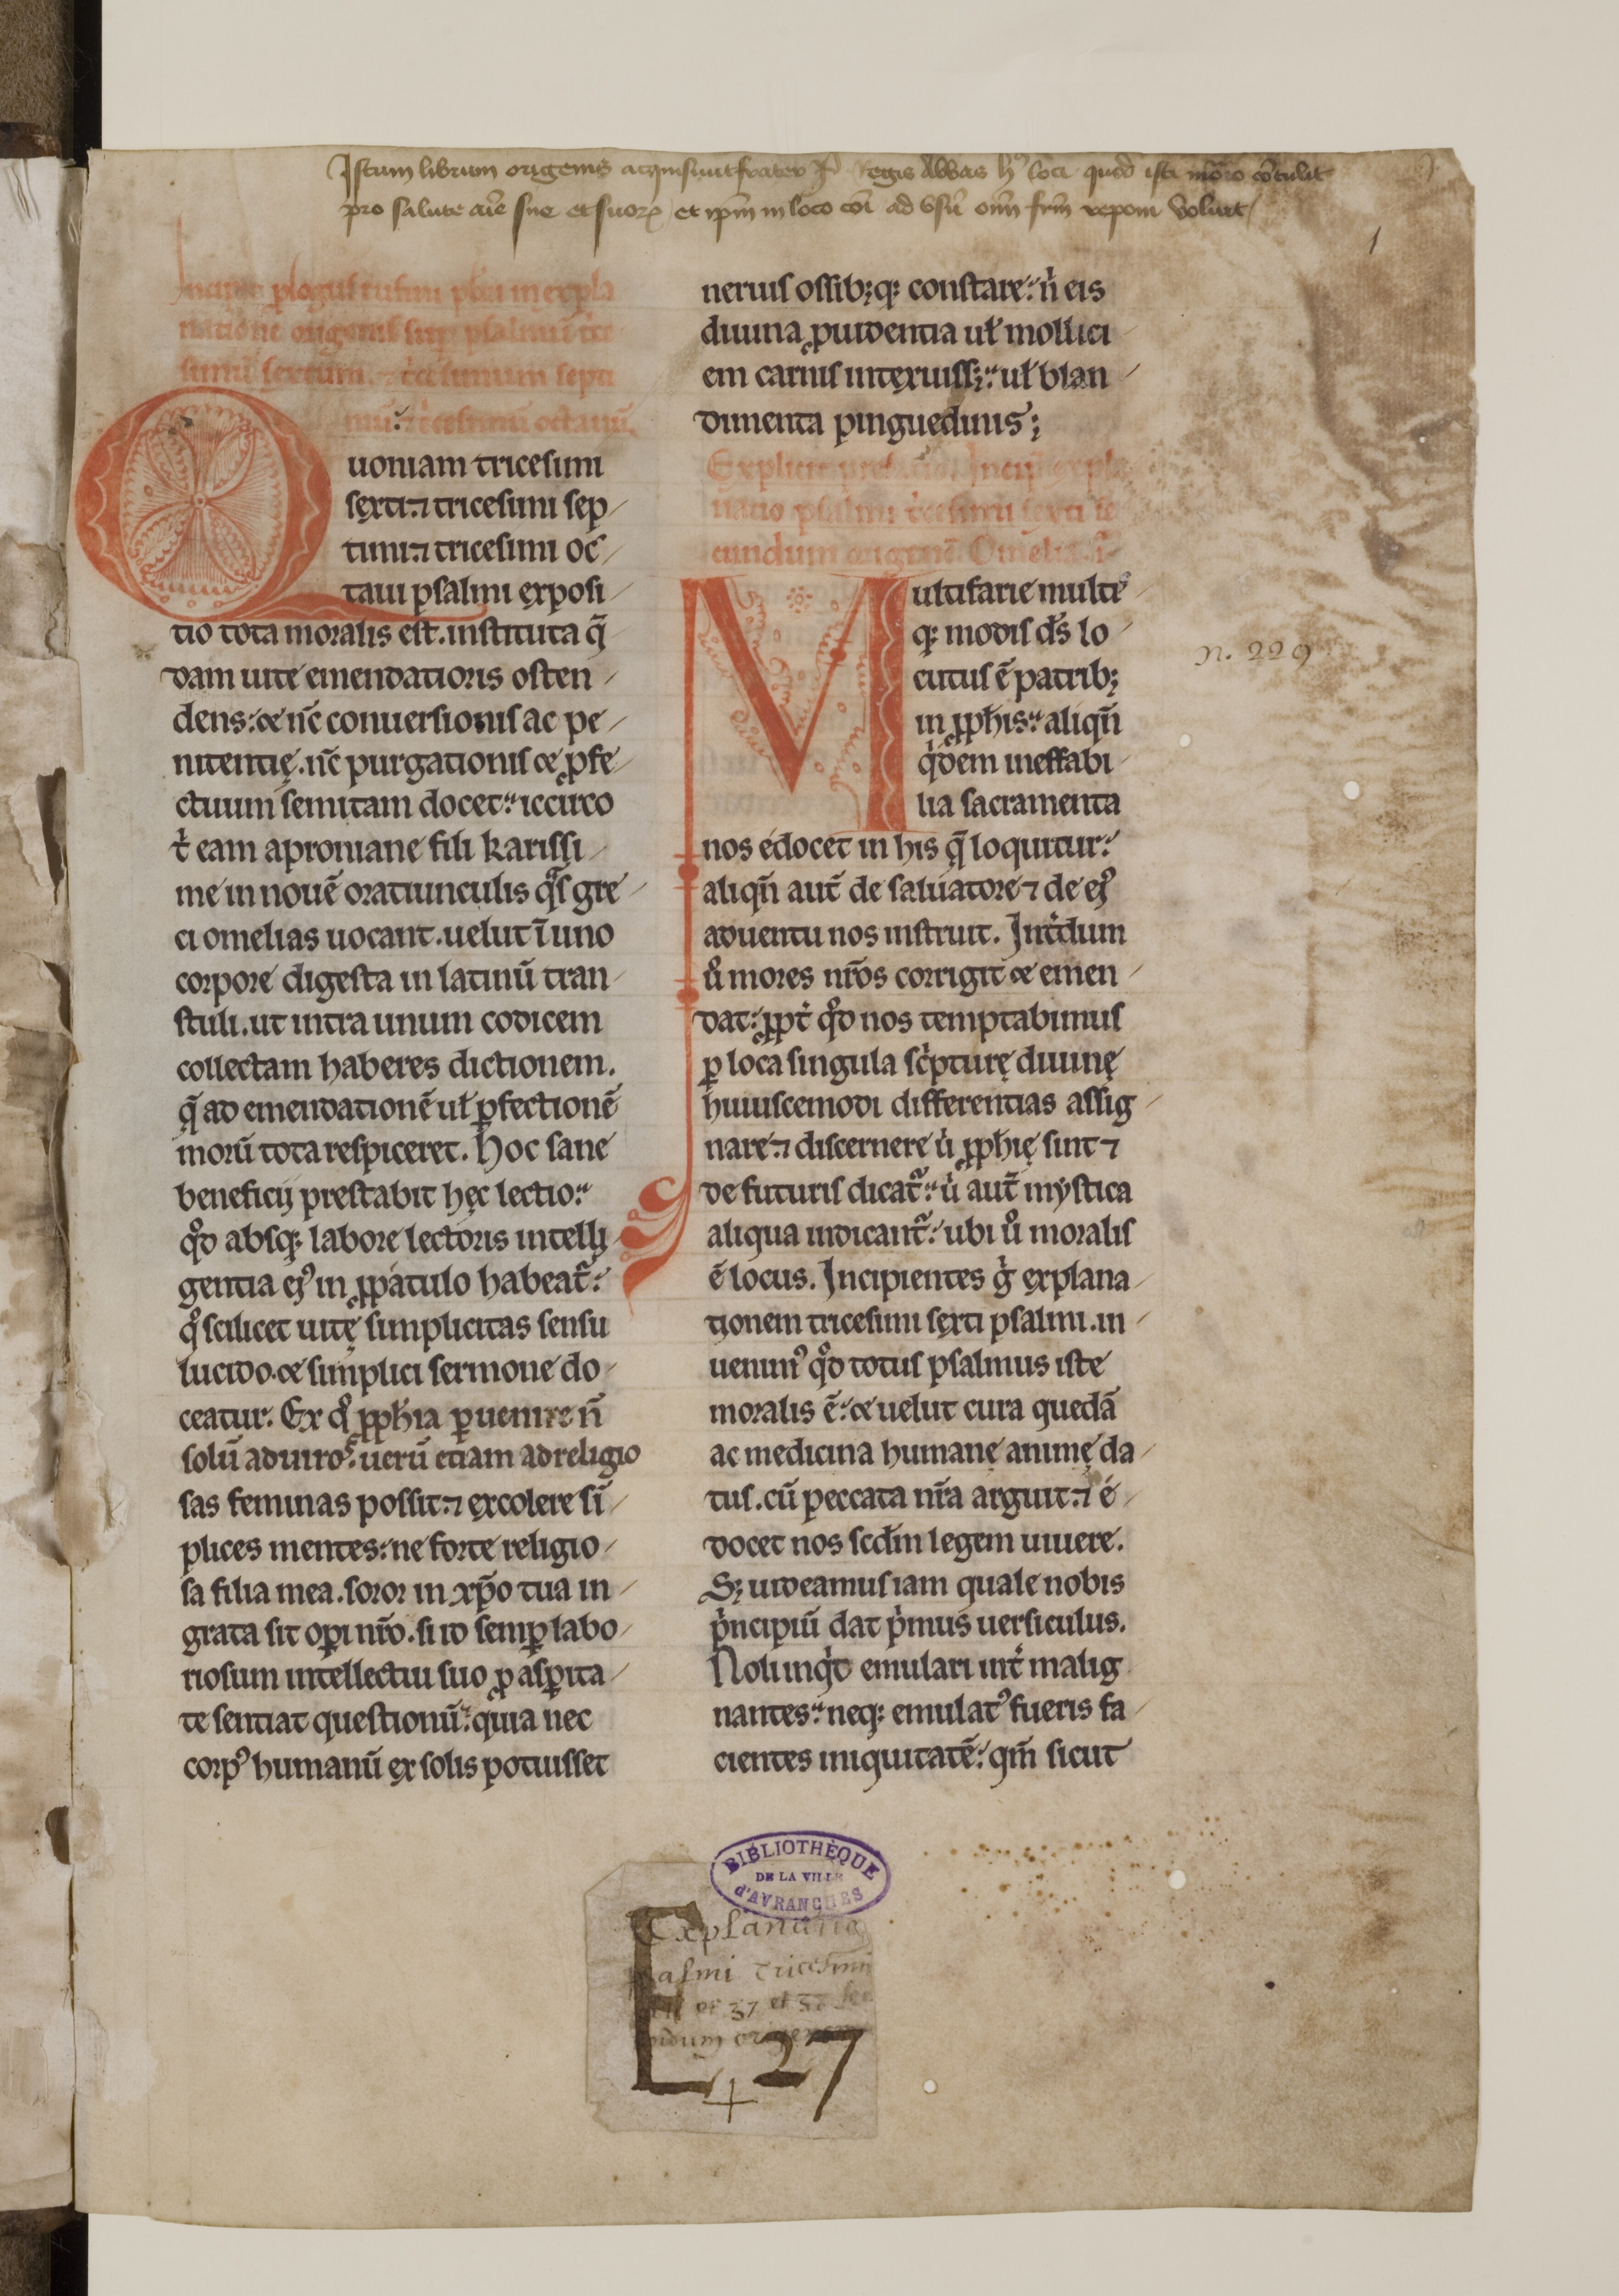 Istum librum origenis acquisiuit frater P̄ Regis Abbas hꝰ loci quod isti mōrō cōtulit
pro salute aīe sue et suorꝝ et ip̄m in loco cōi ad vsū oīm frm̄ reponi voluit
1
Incipit ꝓlogus rufini pbr̄i in expla
natione origenis sup̄ psalmū t̓ce
simū sextum. ⁊ t̓cesimum septi
mū. ⁊ t̓cesimū octauū.
Quoniam tricesimi
sexti ⁊ tricesimi sep
timi ⁊ tricesimi oc
taui psalmi exposi
tio tota moralis est. instituta q̄
dam uite emendatioris osten
dens: & nc̄ conuersionis ac pe
nitentię. nc̄ purgationis & ꝓfe
ctuum semitam docet: iccirco
t̓ eam aproniane fili karissi
me in nouē oratiunculis qͣs gre
ci omelias uocant. uelut ī uno
corpore digesta in latinū tran
stuli. ut intra unum codicem
collectam haberes dictionem.
q̄ ad emendationē ut̄ ꝑfectionē
morū tota respiceret. Hoc sane
beneficij prestabit hęc lectio:
qͦd absq; labore lectoris intelli
gentia eiꝰ in ꝓpatulo habeat̄:
qͦ scilicet uitę simplicitas sensu
lucido. & simplici sermone do
ceatur. Ex qͦ ꝓph̄ia ꝑuenire n̄
solū ad uiros: uerū etiam ad religio
sas feminas possit. ⁊ excolere sī
plices mentes: ne forte religio
sa filia mea. soror in xp̄o tua in
grata sit oꝑi nr̄o. si id semꝑ labo
riosum intellectui suo ꝓ asꝑita
te sentiat questionū: quia nec
corpꝰ humanū ex solis potuisset
neruis ossib; q; constare: n̓ eis
diuina ꝓuidentia ut̄ mollici
em carnis intexuiss;: ut̄ blan
dimenta pinguedinis;
Explicit prefatio. Incip̄ expla
natio psalmi t̓cesimi sexti se
cundum origenē Omelia .i.
Multifarie multe
q; modis ds̄ lo
cutus ē patrib;
in ꝓph̄is: aliqn̄
qͥdem ineffabi
lia sacramenta
nos edocet in his q̄ loquitur:
aliqn̄ aut̄ de saluatore ⁊ de eiꝰ
aduentu nos instruit. Int̓dum
uͦ mores nr̄os corrigit & emen
dat: ꝓpt̓ qͦd nos temptabimus
ꝑ loca singula scͥpturę diuinę
huiuscemodi differentias assig
nare. ⁊ discernere uͥ ꝓph̄ię sint ⁊
de futuris dicat̄: uͥ aut̄ mystica
aliqua indicant̄: ubi uͦ moralis
ē locus. Incipientes gͥ explana
tionem tricesimi sexti psalmi. in
uenimꝰ qͦd totus psalmus iste
moralis ē: & uelut cura quedā
ac medicina humanę animę da
tus. cū peccata nr̄a arguit. ⁊ e
docet nos scdm̄ legem uiuere.
S; uideamus iam quale nobis
pͥncipiū dat pͥmus uersiculus.
Noli inqͥt emulari int̓ malig
nantes: neq; emulatꝰ fueris fa
cientes iniquitatē: qm̄ sicut
n. 229
BIBLIOTHÈQUE
DE LA VILLE
d'AVRANCHES
Explanatio
psalmi tricesimi
et 37 et 38 sec
undum origenem
E 27
+